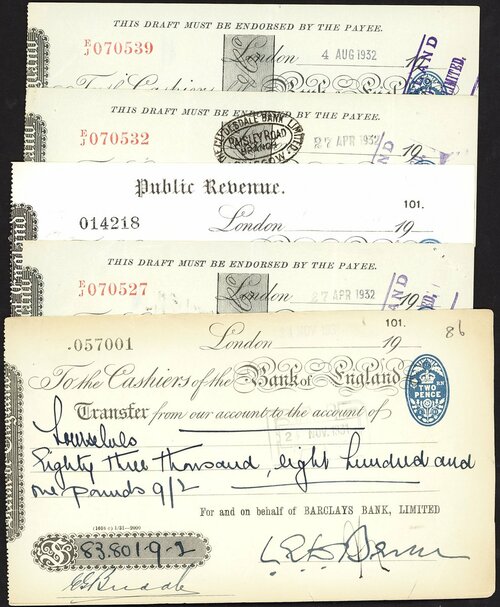 THIS DRAFT MUST BE ENDORSED BY THE PAYEE.
E/J 070539
London 4 AUG 1932 19
LIMITED.
THIS DRAFT MUST BE ENDORSED BY THE PAYEE.
E/J 070532
CLYDESDALE BANK LIMITED
PAISLEY ROAD
BRANCH
27 APR 1932 19
Public Revenue.
101.
014218 London 19
THIS DRAFT MUST BE ENDORSED BY THE PAYEE.
E/J 070527 London 27 APR 1932 19
101. 86
.057001 London 19
To the Cashiers of the Bank of England
TWO PENCE
Transfer from our account to the account of
NOV. 1931
Themselves
Eighty three thousand, eight hundred and
one pounds 9/2
For and on behalf of BARCLAYS BANK, LIMITED
83801-9-2